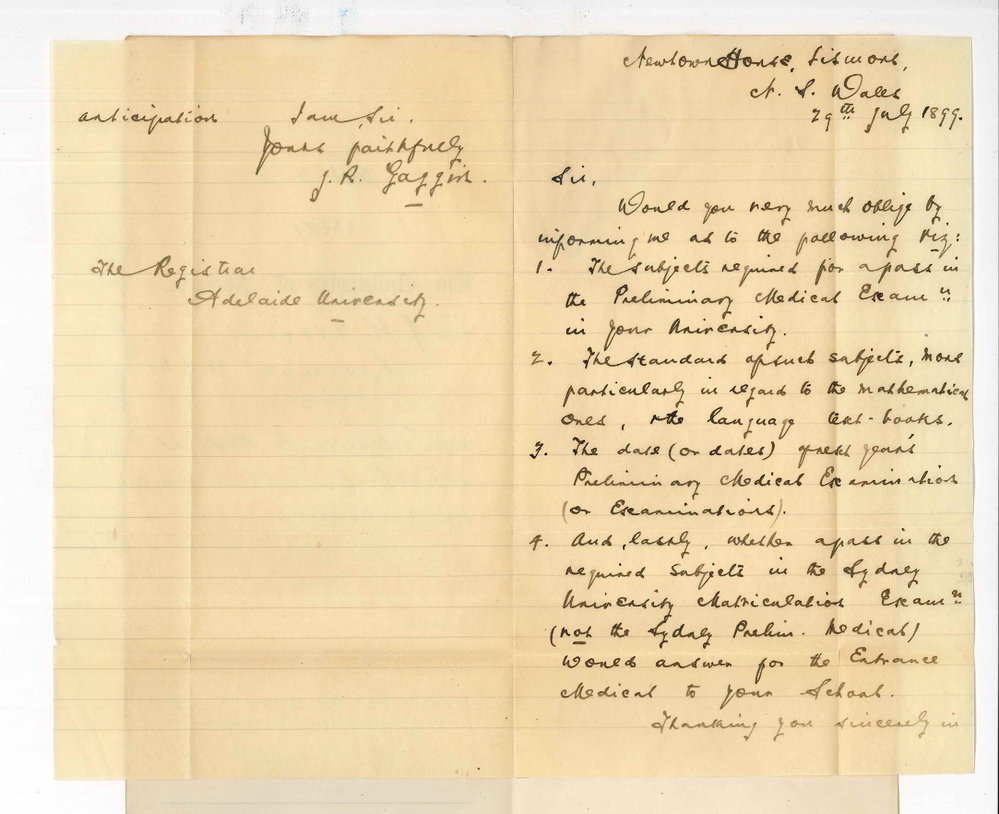 Newtown House, Lismore,
N. S. Wales
29th July 1899.
Sir,
Would you very much oblige by
informing me as to the following viz:
1. The subjects required for a pass in
the Preliminary Medical Examn
in your University.
2. The standard of such subjects, more
particularly in regard to the mathematical
ones, & the language text-books.
3. The date (or dates) of next year's
Preliminary Medical Examination
(or Examinations).
4. And, lastly, whether a pass in the
required subjects in the Sydney
University Matriculation Examn
(not the Sydney Prelim. Medical)
would answer for the Entrance
Medical to your School.
Thanking you sincerely in
anticipation
I am, Sir.
Yours faithfully
J. R. Gaggin.
The Registrar
Adelaide University.